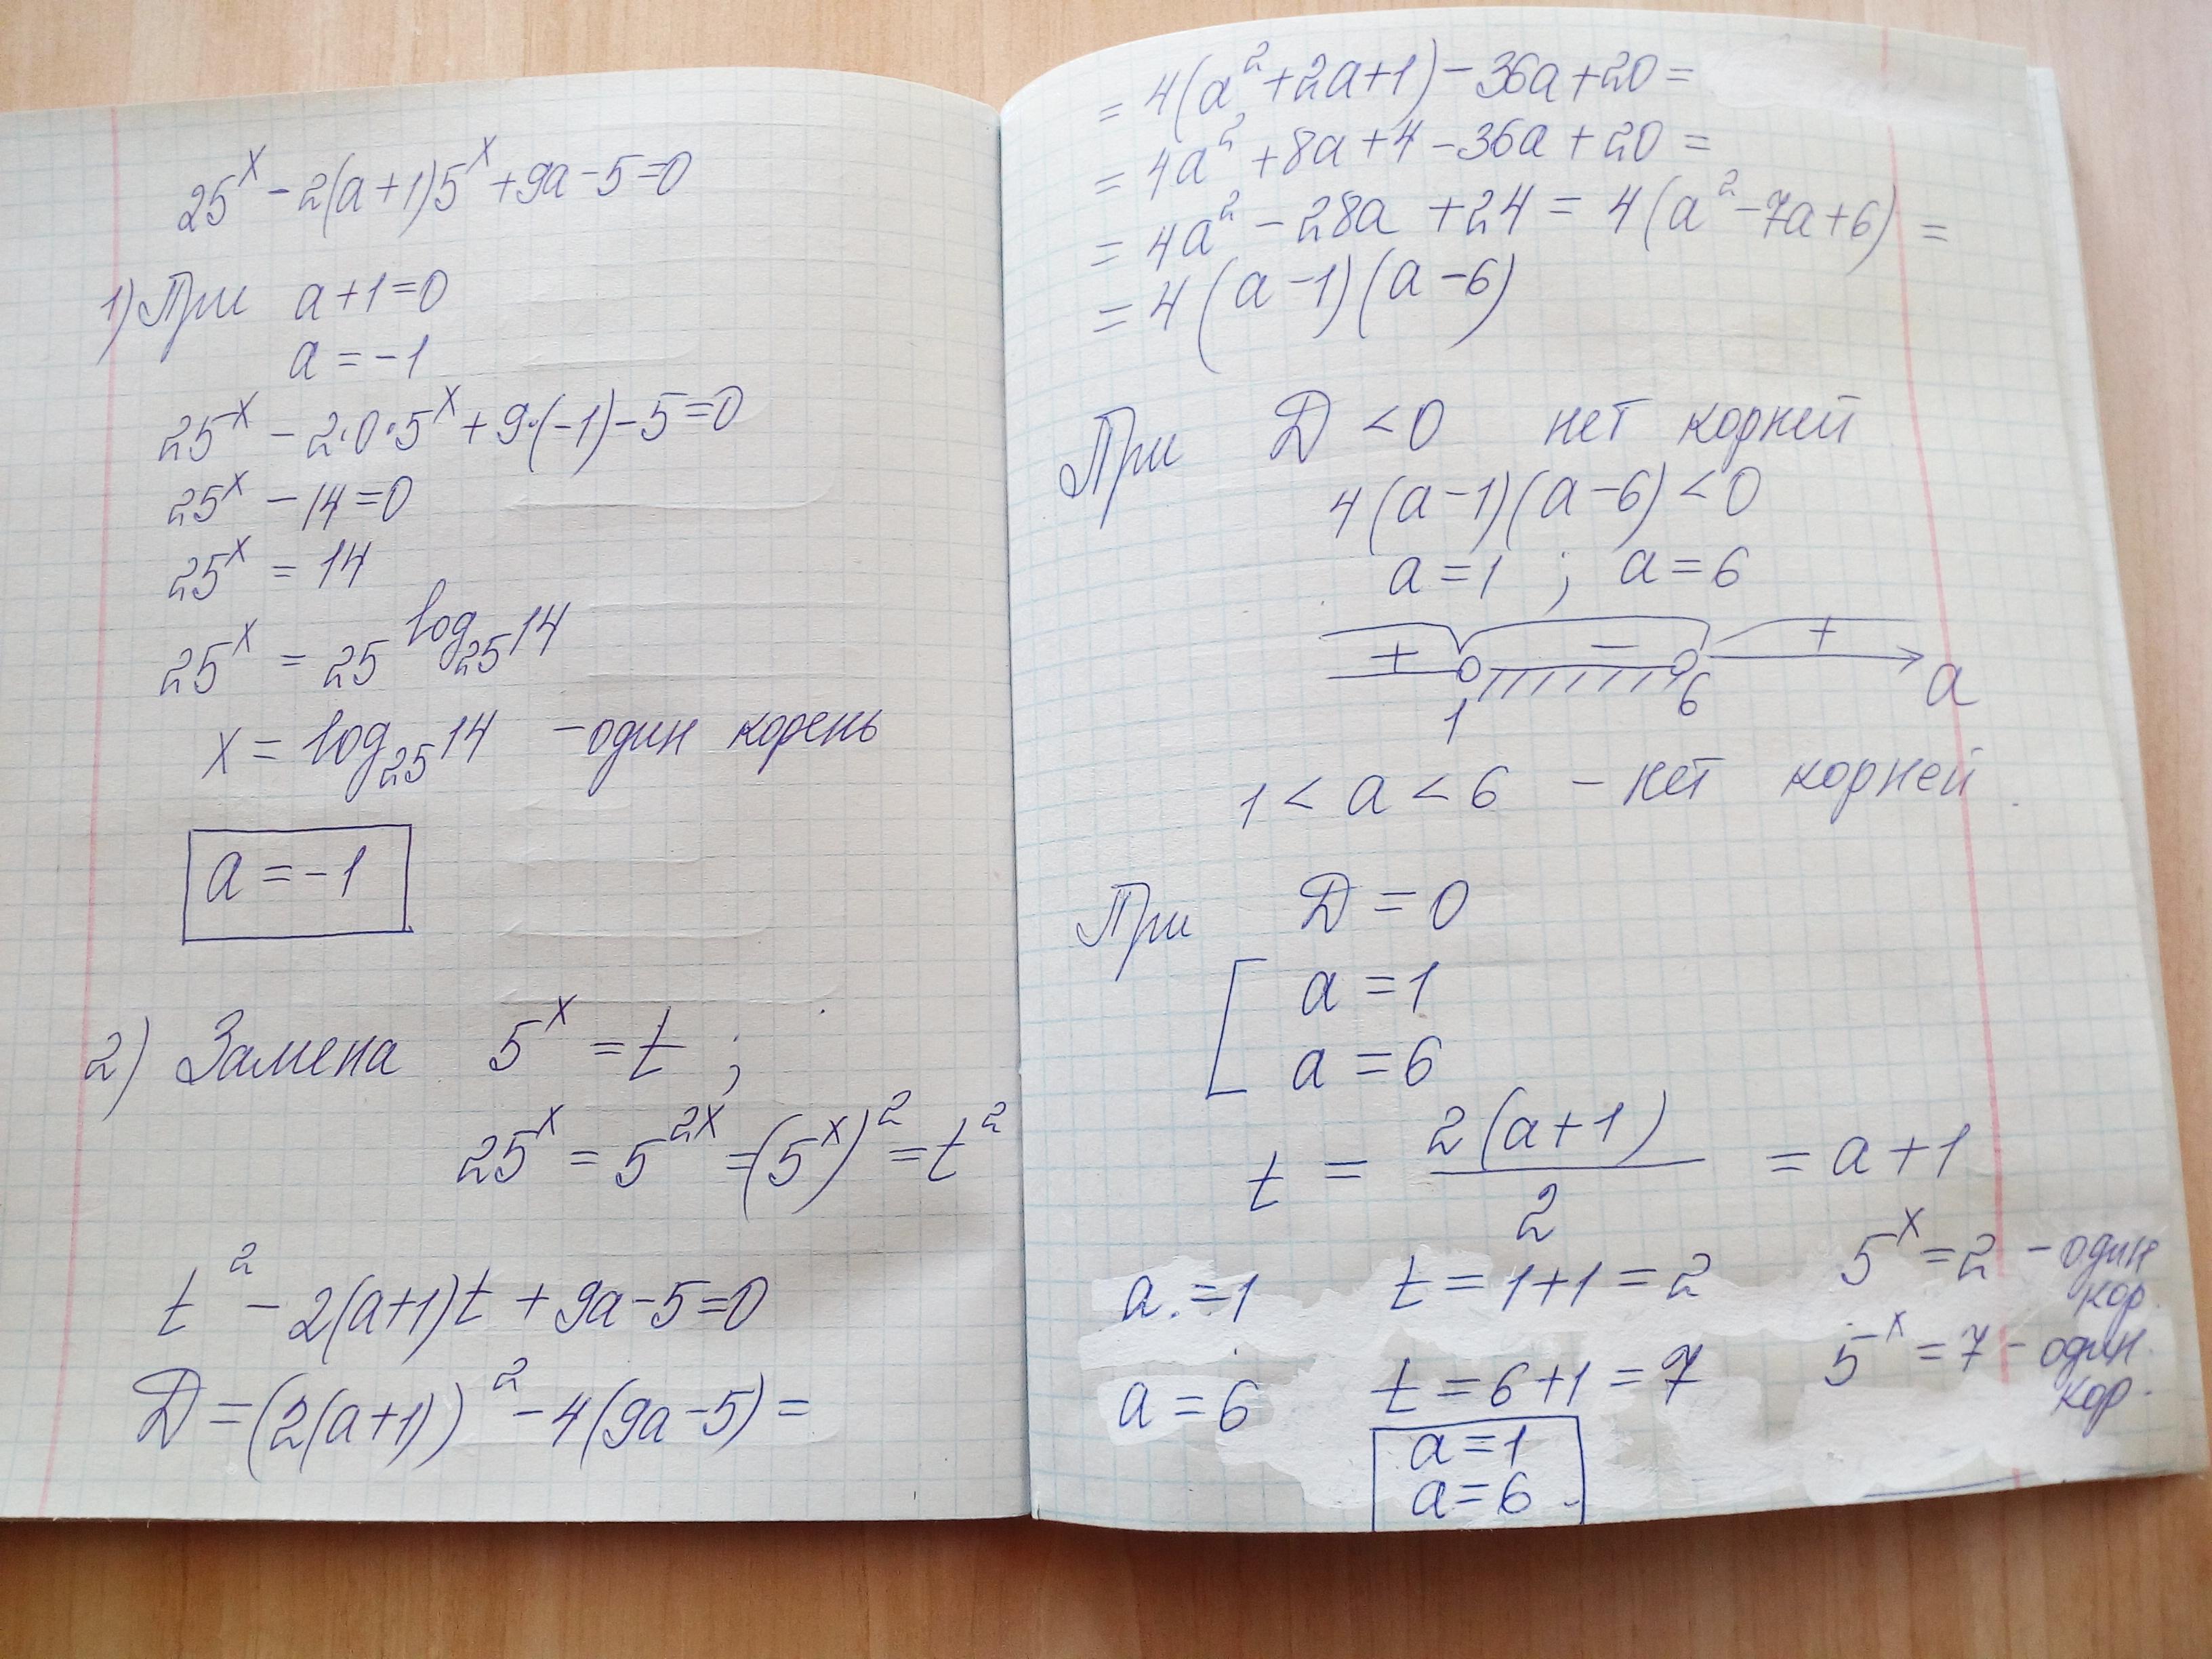 25^x - 2(a+1)5^x + 9a - 5 = 0
1) При a + 1 = 0
a = -1
25^x - 2·0·5^x + 9·(-1) - 5 = 0
25^x - 14 = 0
25^x = 14
25^x = 25^{log_{25} 14}
x = log_{25} 14 - один корень
a = -1
2) Замена 5^x = t ;
25^x = 5^{2x} = (5^x)^2 = t^2
t^2 - 2(a+1)t + 9a - 5 = 0
D = (2(a+1))^2 - 4(9a - 5) =
= 4(a^2 + 2a + 1) - 36a + 20 =
= 4a^2 + 8a + 4 - 36a + 20 =
= 4a^2 - 28a + 24 = 4(a^2 - 7a + 6) =
= 4(a - 1)(a - 6)
При D < 0 нет корней
4(a - 1)(a - 6) < 0
a = 1 ; a = 6
+ - +
1 6 a
1 < a < 6 - нет корней
При D = 0
[ a = 1
a = 6
t = \frac{2(a+1)}{2} = a + 1
a = 1 t = 1 + 1 = 2 5^x = 2 - один кор.
a = 6 t = 6 + 1 = 7 5^x = 7 - один. кор.
a = 1
a = 6